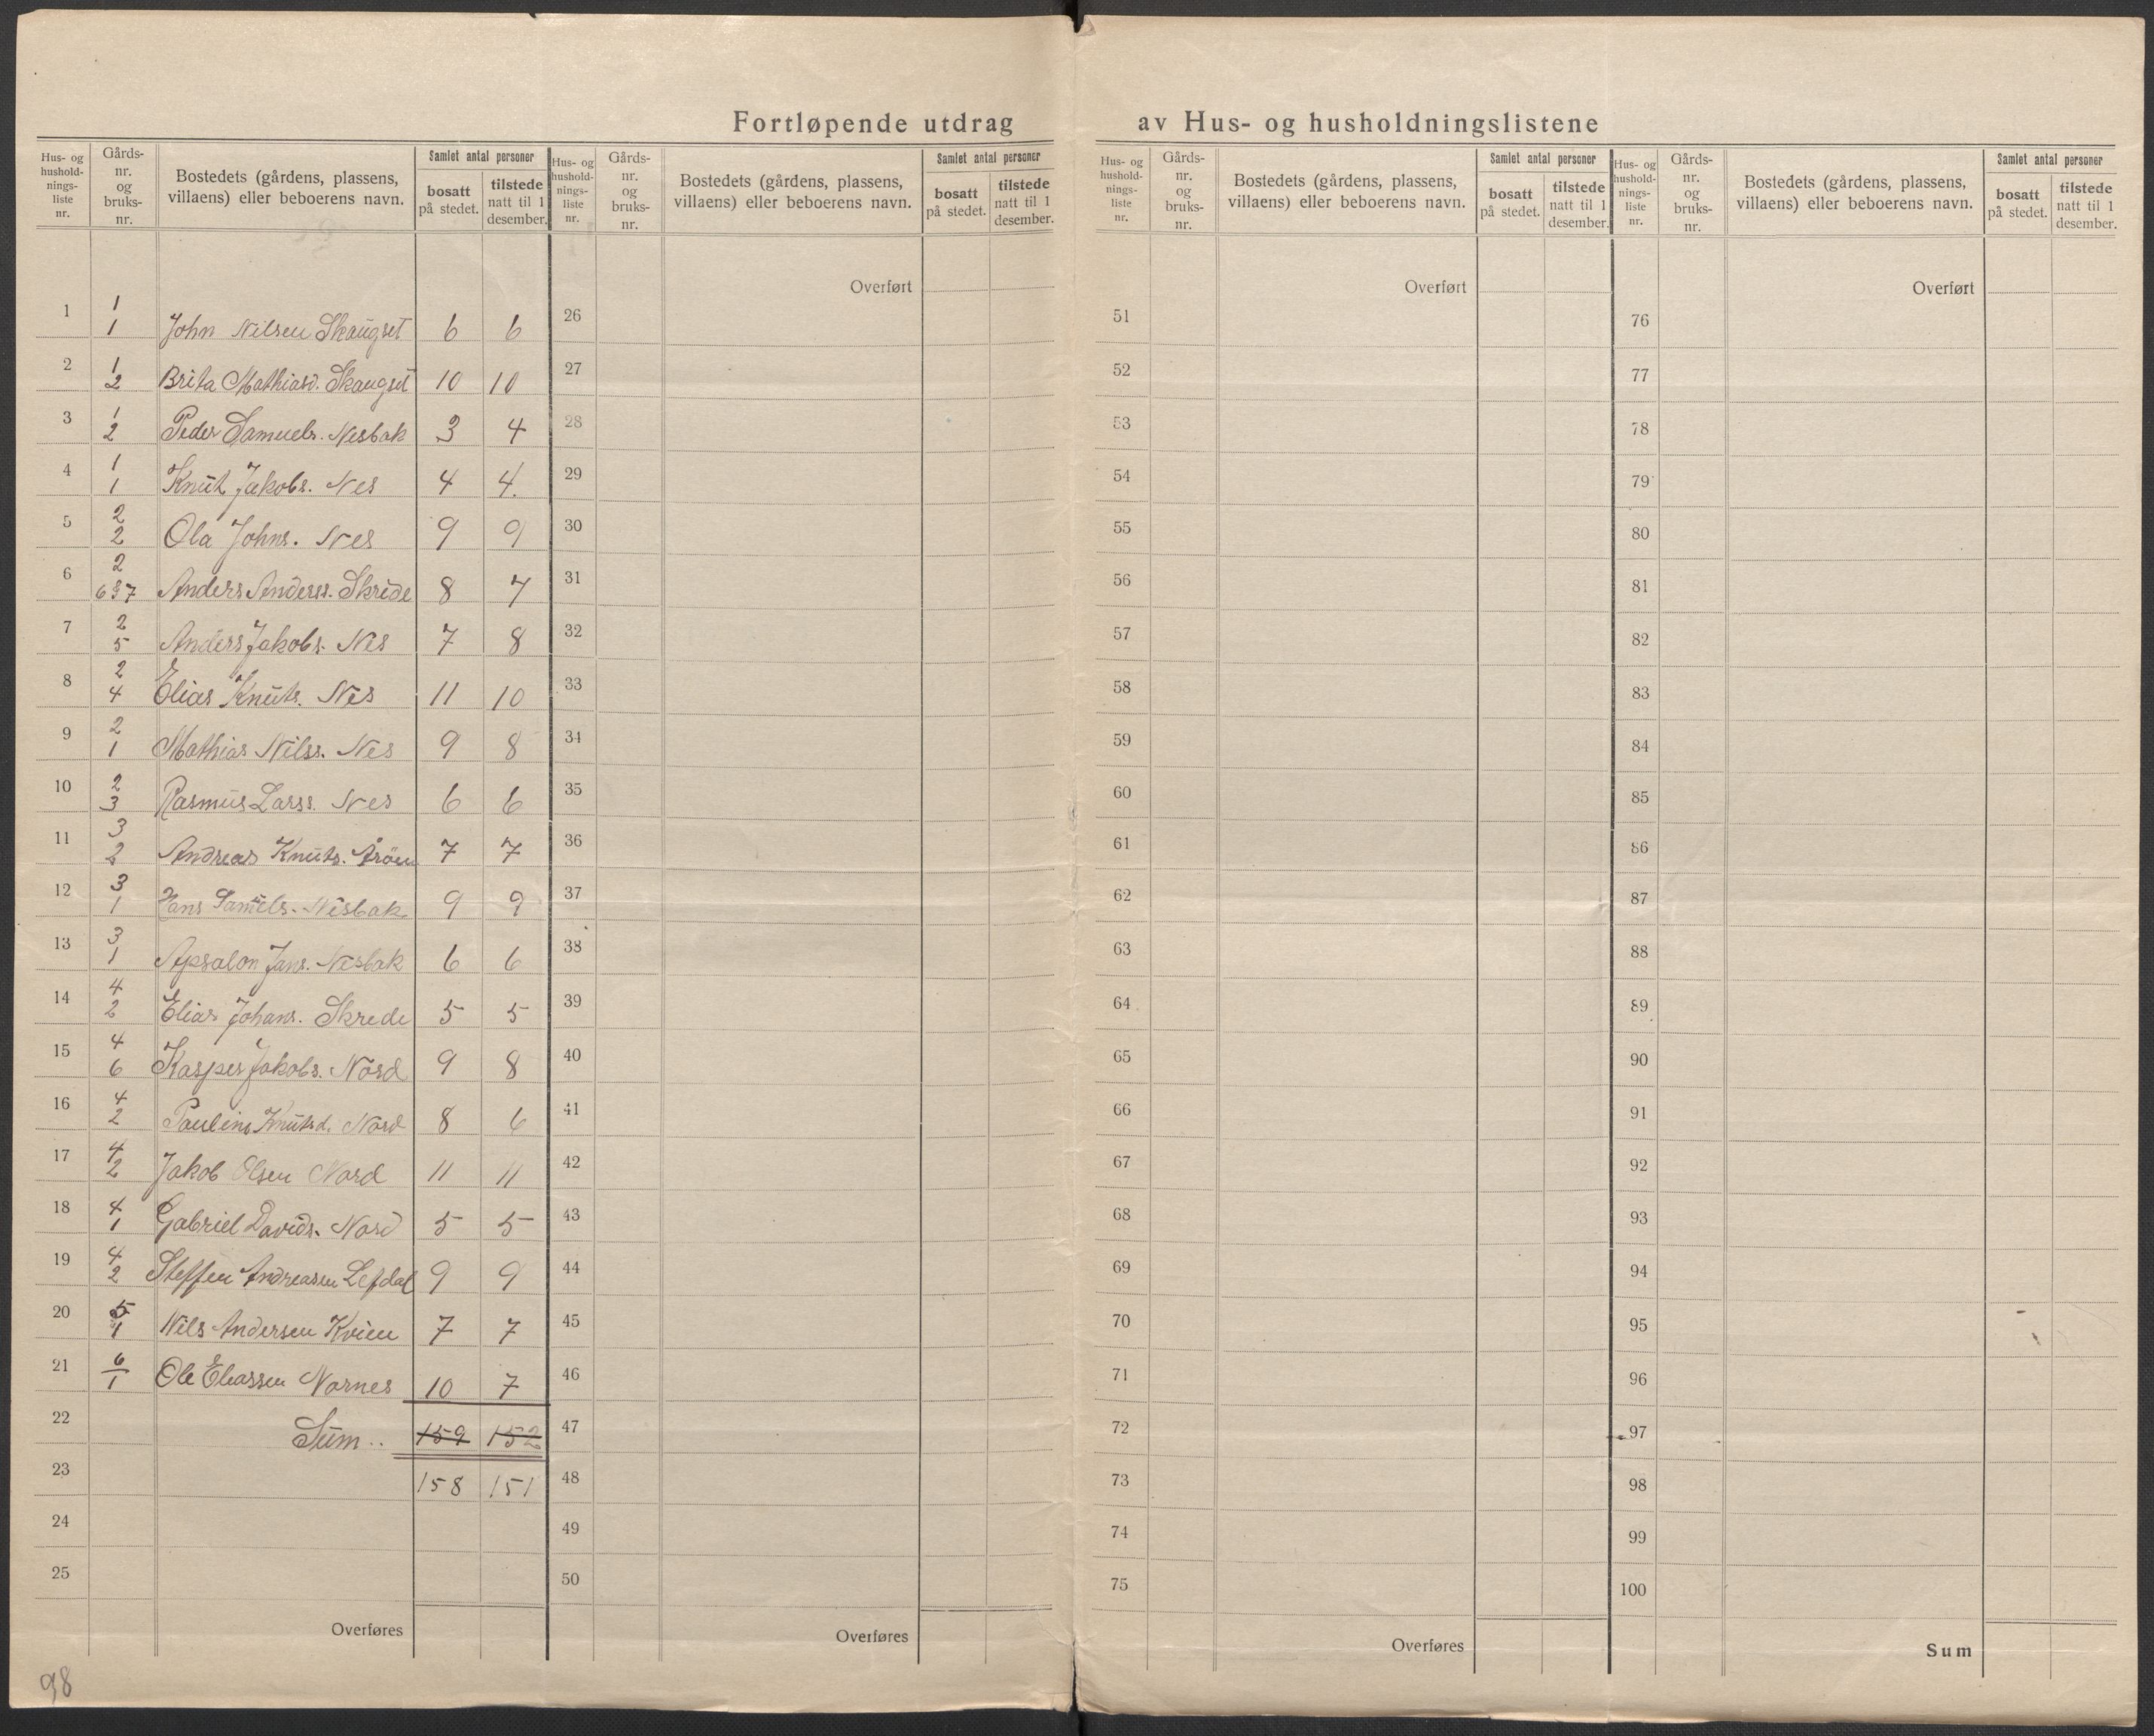 Fortløpende utdrag av Hus- og husholdningslistene
Hus- og husholdnings-liste nr. Gårds-nr. og bruks-nr. Bostedets (gårdens, plassens, villaens) eller beboerens navn. Samlet antal personer bosatt på stedet. tilstede natt til 1 desember.
Hus- og husholdnings-liste nr. Gårds-nr. og bruks-nr. Bostedets (gårdens, plassens, villaens) eller beboerens navn. Samlet antal personer bosatt på stedet. tilstede natt til 1 desember.
Hus- og husholdnings-liste nr. Gårds-nr. og bruks-nr. Bostedets (gårdens, plassens, villaens) eller beboerens navn. Samlet antal personer bosatt på stedet. tilstede natt til 1 desember.
Hus- og husholdnings-liste nr. Gårds-nr. og bruks-nr. Bostedets (gårdens, plassens, villaens) eller beboerens navn. Samlet antal personer bosatt på stedet. tilstede natt til 1 desember.
Overført Overført Overført
1 1/1 John Nilsen Skaugset 6 6 26 51 76
2 1/2 Brita Mathiasd. Skaugset 10 10 27 52 77
3 1/2 Peder Samuels. Nesbak 3 4 28 53 78
4 1/1 Knut Jakobs. Nes 4 4. 29 54 79
5 2/2 Ola Johns. Nes 9 9 30 55 80
6 2/6&7 Anders Anderss. Skrede 8 7 31 56 81
7 2/5 Anders Jakobs. Nes 7 8 32 57 82
8 2/4 Elias Knuts. Nes 11 10 33 58 83
9 2/1 Mathias Nilss. Nes 9 8 34 59 84
10 2/3 Rasmus Larss. Nes 6 6 35 60 85
11 3/2 Andreas Knuts. 7 7 36 61 86
12 3/1 Hans Samuels. Nesbak 9 9 37 62 87
13 3/1 Apsalon Jans. Nesbak 6 6 38 63 88
14 4/2 Elias Johans. Skrede 5 5 39 64 89
15 4/6 Kasper Jakobs. Nord 9 8 40 65 90
16 4/2 Pauline Knutsd. Nord 8 6 41 66 91
17 4/2 Jakob Olsen Nord 11 11 42 67 92
18 4/1 Gabriel Davids. Nord 5 5 43 68 93
19 4/2 Steffen Andreasen Lefdal 9 9 44 69 94
20 5/1 Nils Andersen Kvien 7 7 45 70 95
21 6/1 Ole Eliassen Nornes 10 7 46 71 96
22 Sum.. 159 152 47 72 97
23 158 151 48 73 98
24 49 74 99
25 50 75 100
Overføres Overføres Overføres Sum
98